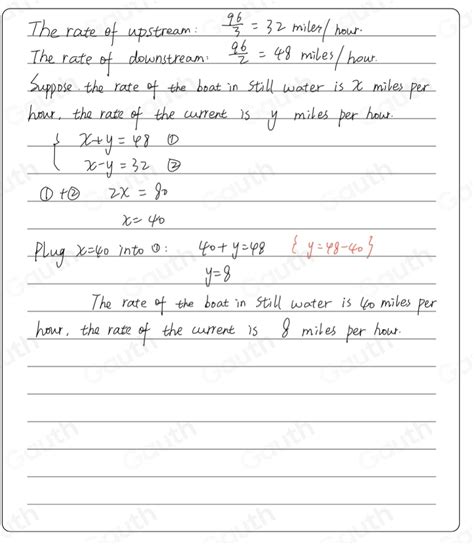 The rate of upstream: 96/3 = 32 miles/hour.
The rate of downstream: 96/2 = 48 miles/hour.
Suppose the rate of the boat in still water is x miles per
hour, the rate of the current is y miles per hour.
{ x+y=48 ①
x-y=32 ②
①+② 2x = 80
x=40
Plug x=40 into ①: 40+y=48 { y=48-40}
y=8
The rate of the boat in still water is 40 miles per
hour, the rate of the current is 8 miles per hour.
Gauth